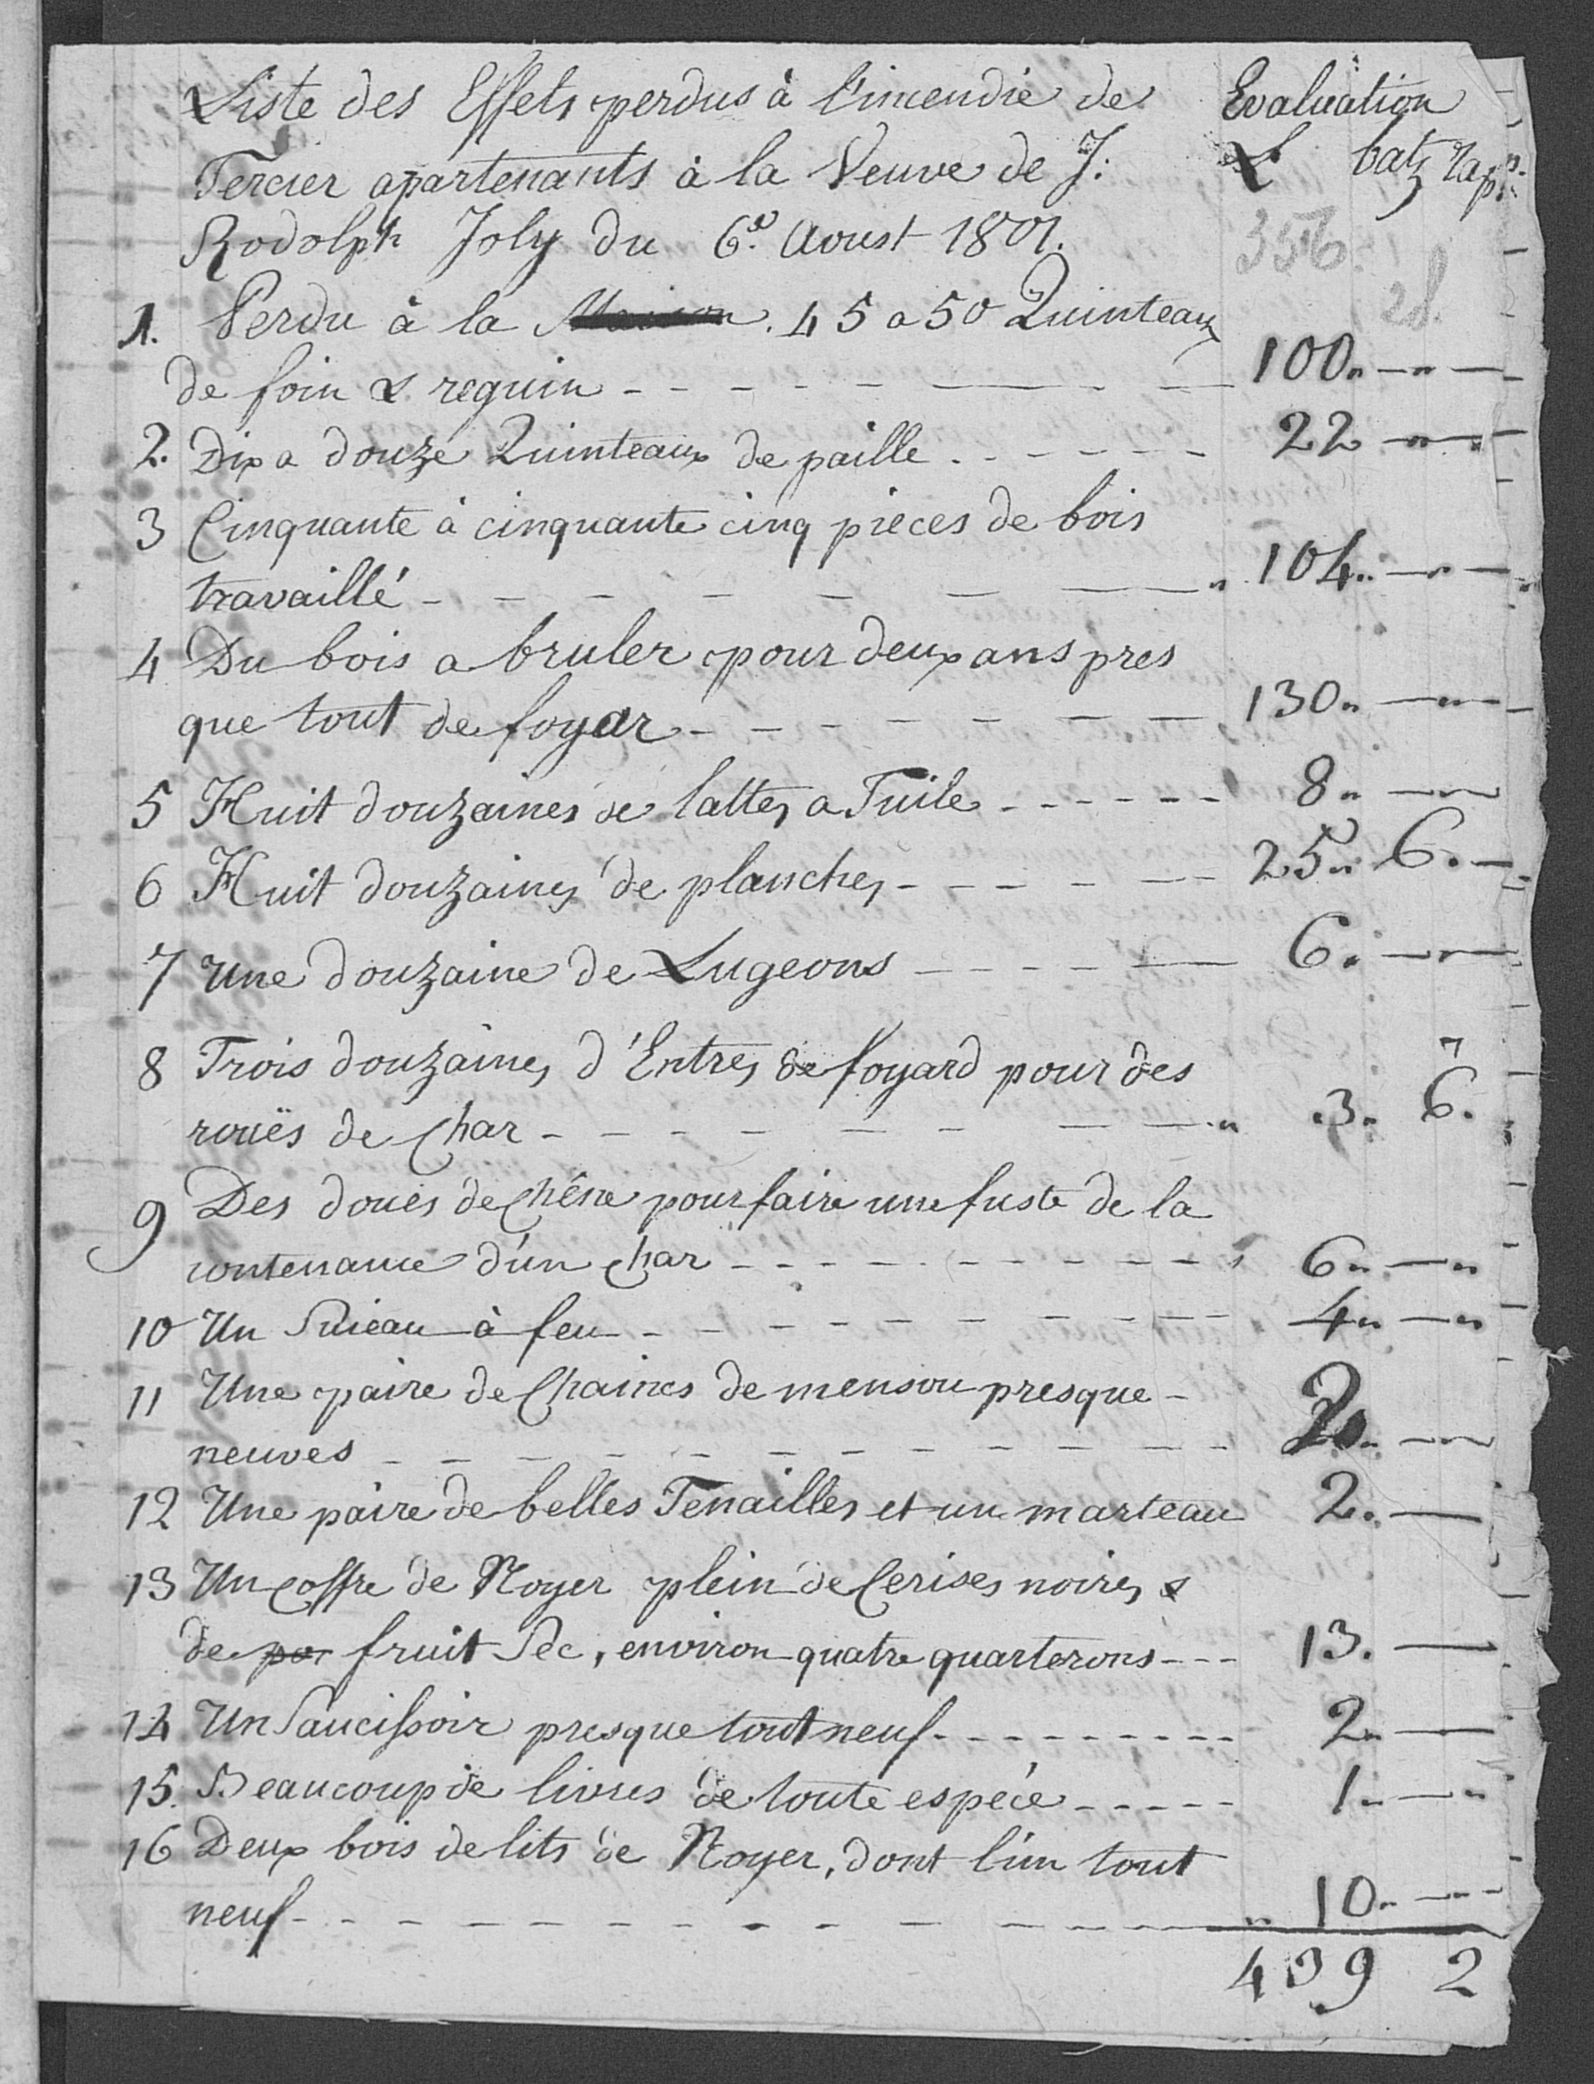 Liste des Effets perdus à l'incendie de Evaluation
Tercier apartenants à la Veuve de J: L batz rap:
Rodolph Joly du 6.e Aoust 1801. 356
28.
1. Perdu à la Maison. 45 a 50 Quinteaux
de foin & reguin - - - - - - 100 " — " —
2. Dix a douze Quinteaux de paille - - - - - - 22 — " —
3 Cinquante à cinquante cinq pieces de bois
travaillé - - - - - - - " 104 " — " —
4 Du bois a bruler pour deux ans pres
que tout de foyar - - - - - - - 130 " — " —
5 Huit douzaines de lattes a Tuile - - - - - - 8 " — "
6 Huit douzaines de planches - - - - - - 25 " 6. —
7 Une douzaine de Lugeons - - - - - 6. — " —
8 Trois douzaines d'Entres de foyard pour des 7
rouës de Char - - - - - - - " 3 " 6.
9 Des douës de Chêne pour faire une fuste de la
contenance d'un Char - - - - - - - - - 6 " — "
10 Un Suieau à feu - - - - - - - - - 4 " — "
11 Une paire de Chaines de mensou presque -
neuves - - - - - - - - - - - 2 " — "
12 Une paire de belles Tenailles et un marteau 2. —
13 Un Coffre de Noyer plein de Cerises noires &
de po fruit Sec, environ quatre quarterons - - - 13. —
14 Un Saucissoir presque tout neuf - - - - - - - - - 2 " —
15. Beaucoup de livres de toute espéce - - - - - 1 " — "
16 Deux bois de lits de Noyer, dont l'un tout
neuf - - - - - - - - - - - " 10 " — "
439 2